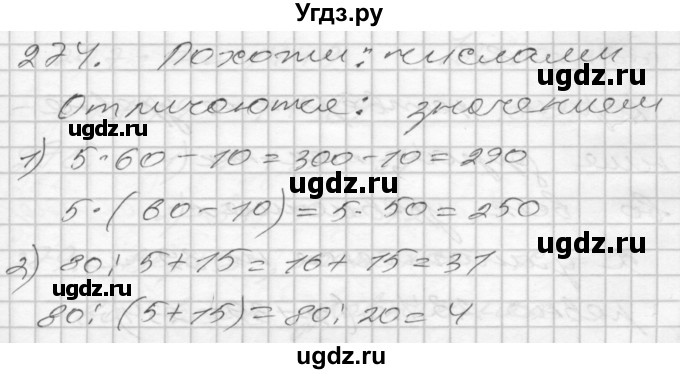 Угдз.ру
274. Похожи: числами
ugdz.ru
Отличаются: значением
ugdz.ru
ugdz.ru
1) 5·60-10=300-10=290
ugdz.ru
5·(60-10)=5·50=250
ugdz.ru
2) 80:5+15=16+15=31
ugdz.ru
ugdz.ru
80:(5+15)=80:20=4
ugdz.ru
ugdz.ru